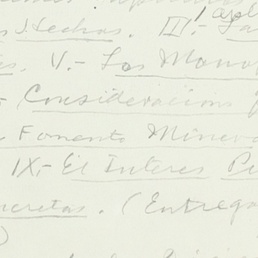 s Techos. III.- La
es. V.- Los Monop
- Consideraciones
Fomento Minero
IX.- El Interes Pu
ncretas. (Entrega
)